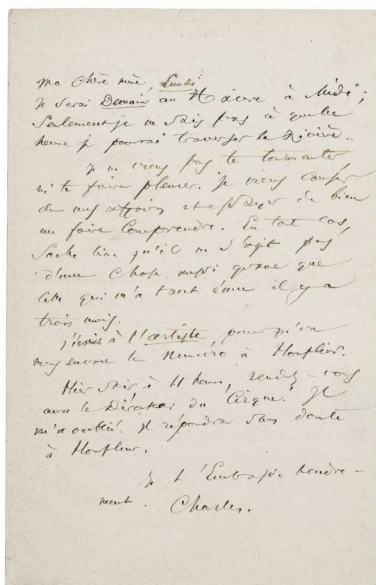 Ma chère mère, Lundi
Je serai Demain au Havre à Midi;
Seulement je ne sais pas à quelle
heure je pourrai traverser la Rivière.
Je ne viens pas te tourmenter
ni te faire pleurer. Je viens causer
de mes affaires et essayer de bien
me faire comprendre. En tout cas,
Sache bien qu'il ne s'agit pas
d'une chose aussi grave que
celle qui m'a tant ému il y a
trois mois.
J'écris à l'artiste, pour qu'on
nous envoie le Numéro à Honfleur.
Hier soir à 11 heures, rendez-vous
avec le Directeur du Cirque. Il
m'a oublié. Il répondra sans doute
à Honfleur.
Je t'Embrasse tendre-
ment. Charles.